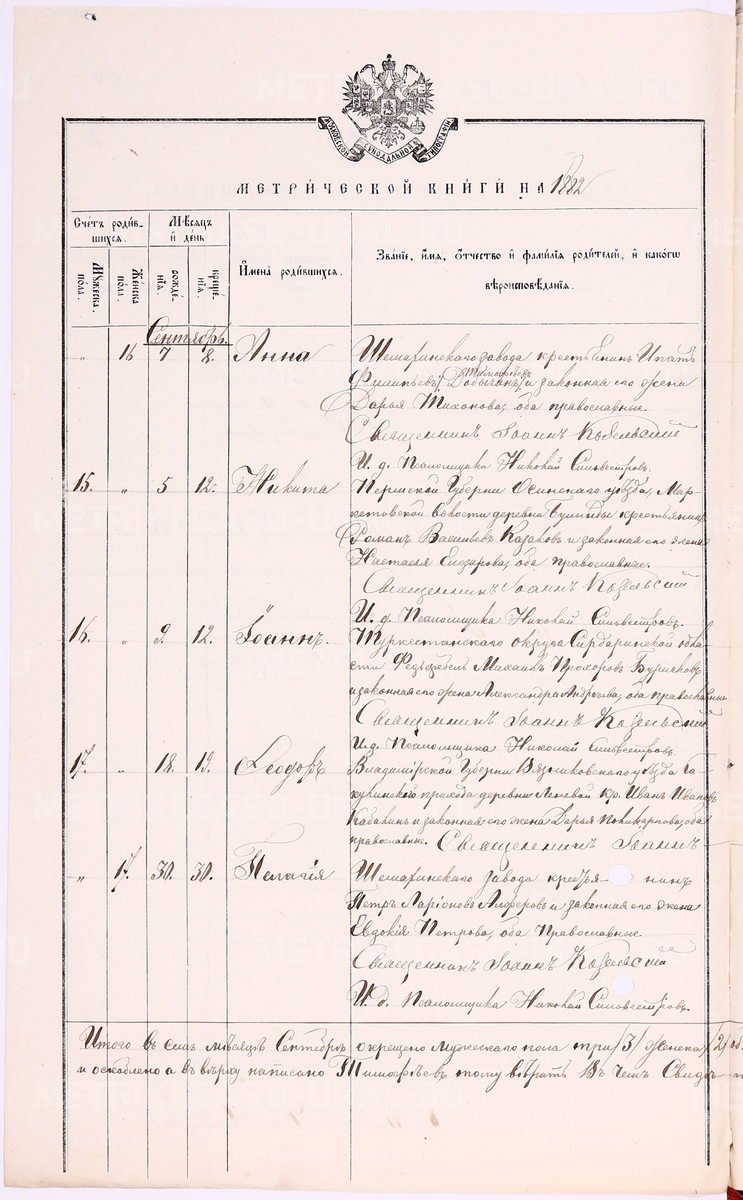 МОСКОВСКОЙ СѴНОДАЛЬНОЙ ТИПОГРАФІИ
МЕТРИ́ЧЕСКОЙ КНИ́ГИ НА 1882
Сче́тъ роди́вшихся.
Мѣ́сяцъ и҆ де́нь
И҆мена̀ роди́вшихся.
Зва́нїе, и҆́мѧ, ѻ҆́тчество и҆ фами́лїѧ роди́телей, и҆ како́гѡ вѣроисповѣ́данїѧ.
Мꙋ́жеска по́ла.
Же́нска по́ла.
рожде́нїѧ.
креще́нїѧ.
Сентябрь.
„ 16 7 8. Анна
Шемахинскаго завода крестьянинъ Ипатъ
Тимофѣевъ
Филипьевъ Добычинъ и законная его жена
Дарья Тихонова, оба православные.
Священникъ Іоаннъ Кобельскій
И. д. Псаломщика Николай Сильвестровъ.
15. „ 5 12. Никита
Пермской Губерніи Осинскаго уѣзда,
волости деревни крестьянинъ
Романъ Васильевъ Казаковъ и законная его жена
Настасья Елизарова, оба православные.
Священникъ Іоаннъ Кобельскій
И. д. Псаломщика Николай Сильвестровъ.
16. „ 2 12. Іоаннъ.
Туркестанскаго округа Сырдаринской области
Фельдфебель Михаилъ Прохоровъ Буряковъ
и законная его жена Александра Андрѣева, оба православные
Священникъ Іоаннъ Кобельскій
И. д. Псаломщика Николай Сильвестровъ.
17. „ 18. 19. Ѳеодоръ
Владимірской Губерніи Вязниковскаго уѣзда
прихода деревни кр. Иванъ Ивановъ
Кабакинъ и законная его жена Дарья Поликарпова, оба
православные. Священникъ Іоаннъ
„ 17. 30. 30. Пелагія
Шемахинскаго завода крестьянинъ
Петръ Ларіоновъ Алферовъ и законная его жена
Евдокія Петрова, оба Православные.
Священникъ Іоаннъ Кобельскій
И. д. Псаломщика Николай Сильвестровъ.
Итого въ семъ мѣсяцѣ Сентябрѣ окрещено мужескаго пола три /3/ женска /2/ об
и оскоблено а въ верху написано Тимофѣевъ тому вѣрить Въ чемъ Свидѣ-